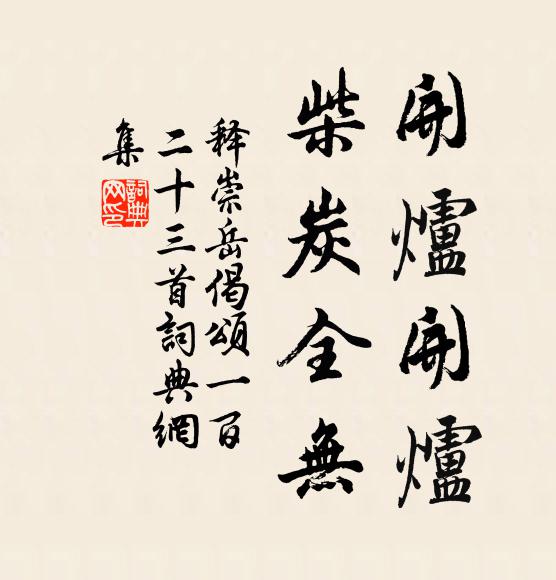 開爐開爐
柴炭全無
释崇岳偈頌一百
二十三首詞典網
集
詞典
网印